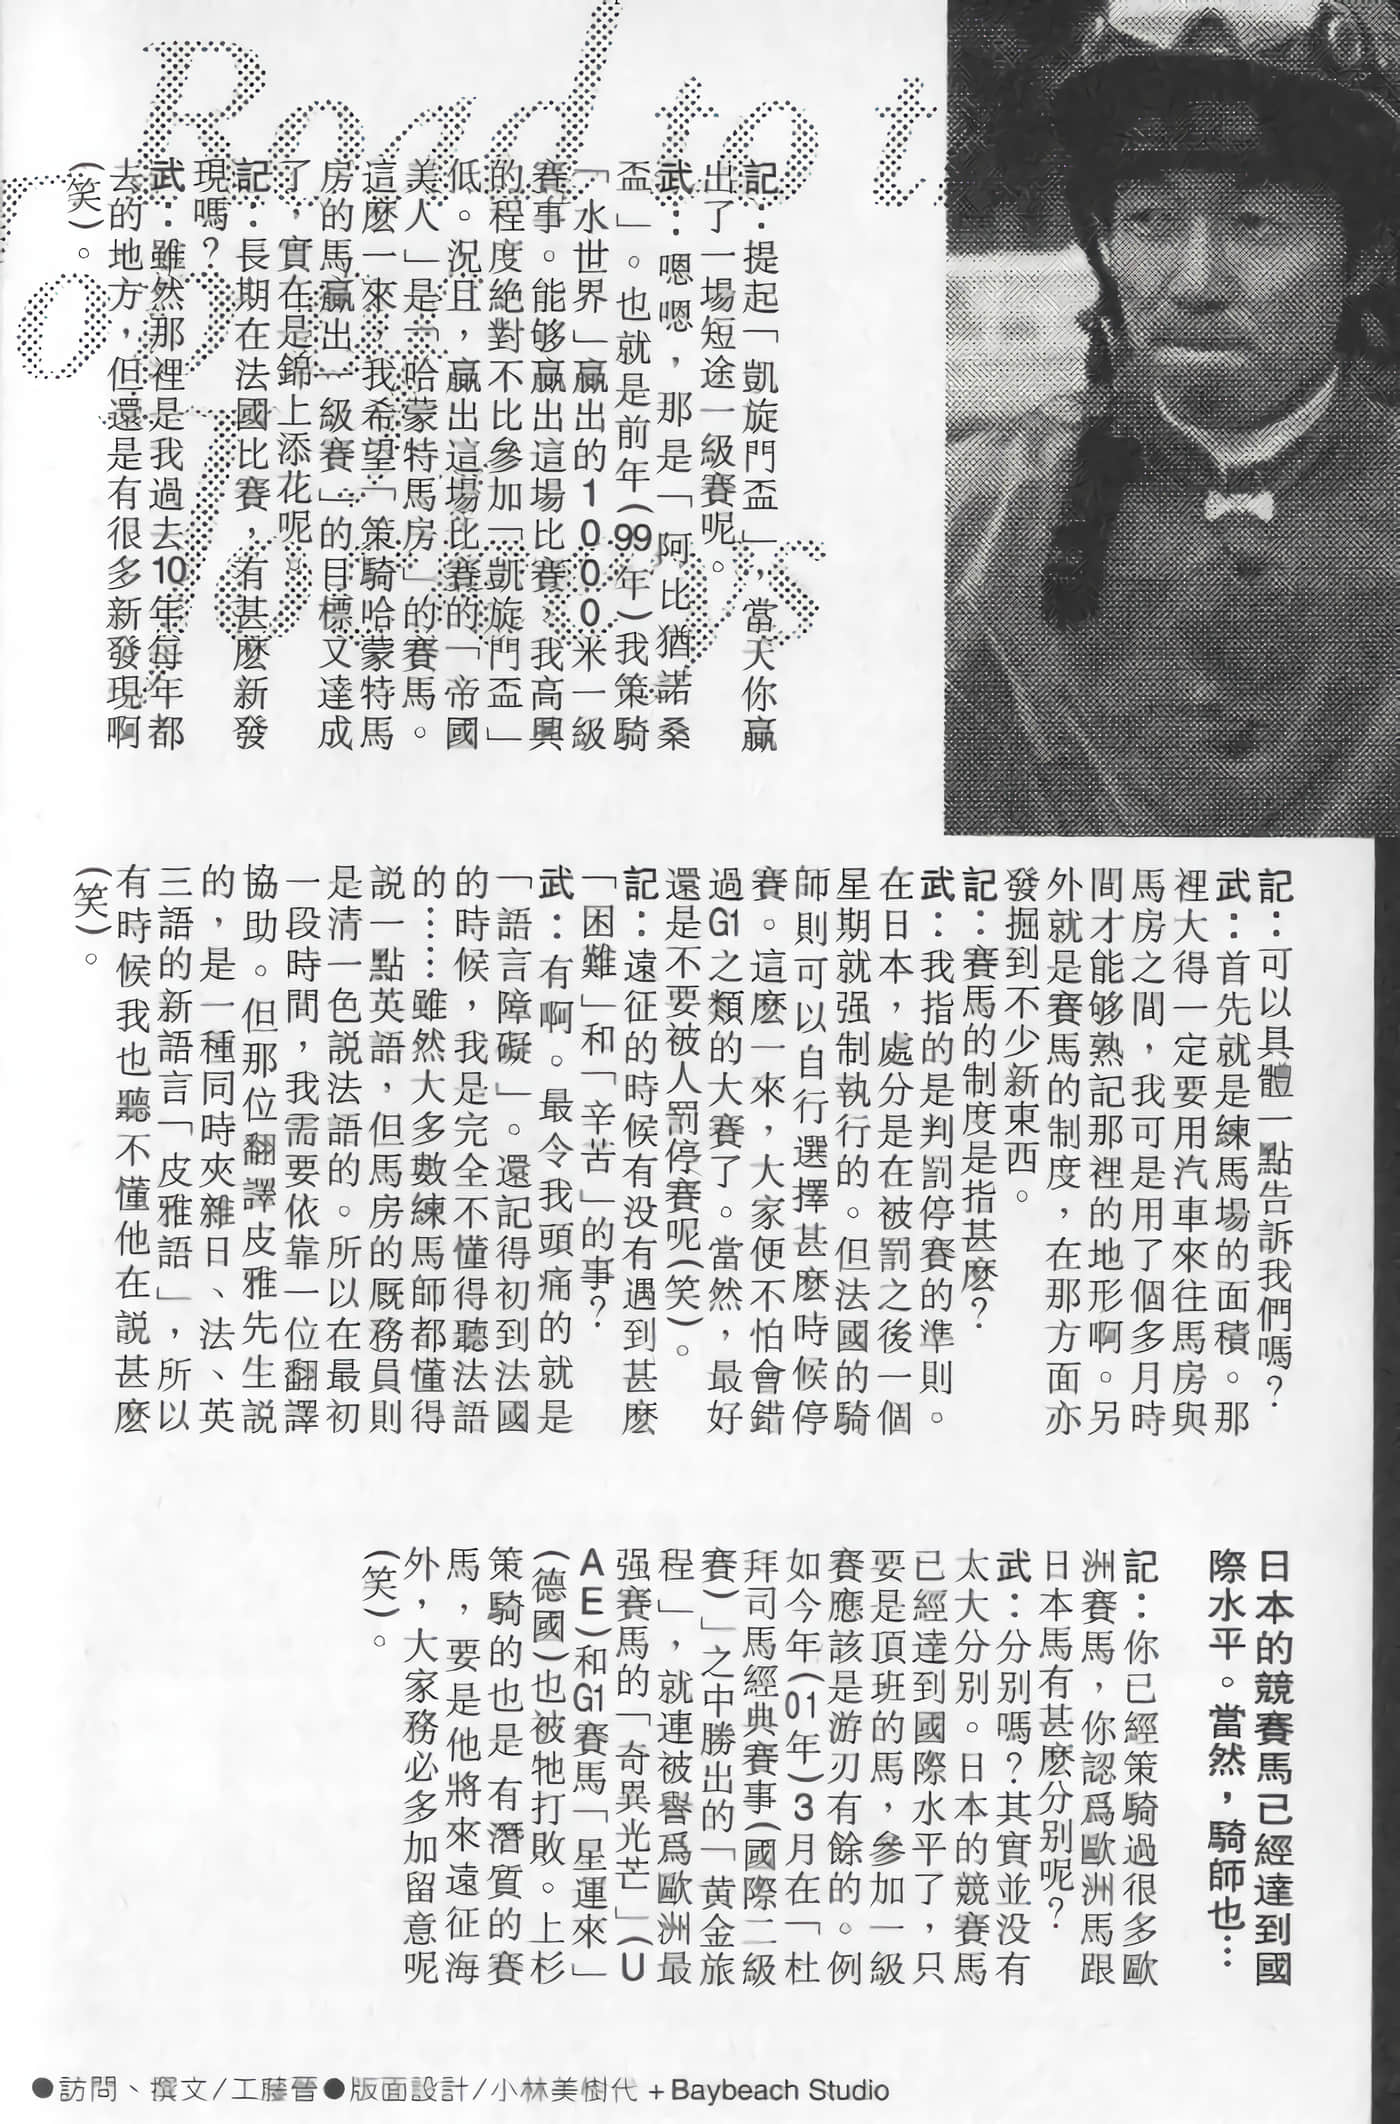 Road to t
Top
Jockeys
記：提起「凱旋門盃」，當天你贏
出了一場短途一級賽呢。
武：嗯嗯，那是「阿比猶諾桑
盃」。也就是前年(99年)我策騎
「水世界」贏出的1000米一級
賽事。能够贏出這場比賽，我高興
的程度絕對不比參加「凱旋門盃」
低。況且，贏出這場比賽的「帝國
美人」是「哈蒙特馬房」的賽馬。
這麽一來，我希望「策騎哈蒙特馬
房的馬贏出一級賽」的目標又達成
了，實在是錦上添花呢。
記：長期在法國比賽，有甚麽新發
現嗎？
武：雖然那裡是我過去10年每年都
去的地方，但還是有很多新發現啊
(笑)。
記：可以具體一點告訴我們嗎？
武：首先就是練馬場的面積。那
裡大得一定要用汽車來往馬房與
馬房之間，我可是用了個多月時
間才能够熟記那裡的地形啊。另
外就是賽馬的制度，在那方面亦
發掘到不少新東西。
記：賽馬的制度是指甚麽？
武：我指的是判罰停賽的準則。
在日本，處分是在被罰之後一個
星期就强制執行的。但法國的騎
師則可以自行選擇甚麽時候停
賽。這麽一來，大家便不怕會錯
過G1之類的大賽了。當然，最好
還是不要被人罰停賽呢(笑)。
記：遠征的時候有没有遇到甚麽
「困難」和「辛苦」的事？
武：有啊。最令我頭痛的就是
「語言障礙」。還記得初到法國
的時候，我是完全不懂得聽法語
的……雖然大多數練馬師都懂得
説一點英語，但馬房的厩務員則
是清一色説法語的。所以在最初
一段時間，我需要依靠一位翻譯
協助。但那位翻譯皮雅先生説
的，是一種同時夾雜日、法、英
三語的新語言「皮雅語」，所以
有時候我也聽不懂他在説甚麽
(笑)。
日本的競賽馬已經達到國
際水平。當然，騎師也…
記：你已經策騎過很多歐
洲賽馬，你認爲歐洲馬跟
日本馬有甚麽分别呢？
武：分别嗎？其實並没有
太大分别。日本的競賽馬
已經達到國際水平了，只
要是頂班的馬，參加一級
賽應該是游刃有餘的。例
如今年(01年)3月在「杜
拜司馬經典賽事(國際二級
賽)」之中勝出的「黄金旅
程」，就連被譽爲歐洲最
强賽馬的「奇異光芒」(U
AE)和G1賽馬「星運來」
(德國)也被牠打敗。上杉
策騎的也是有潛質的賽
馬，要是他將來遠征海
外，大家務必多加留意呢
(笑)。
●訪問、撰文/工藤晉●版面設計/小林美樹代 + Baybeach Studio